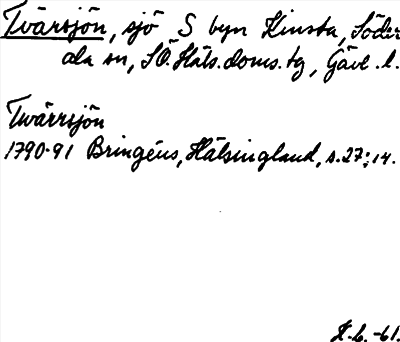 Tvärsjön, sjö S byn Kinsta, Söder
ala sn, SÖ. Häls. doms. tg, Gävl. l.
Twärrsjön
1790-91 Bringéus, Hälsingland, s. 27; 14.
K. b. -61.